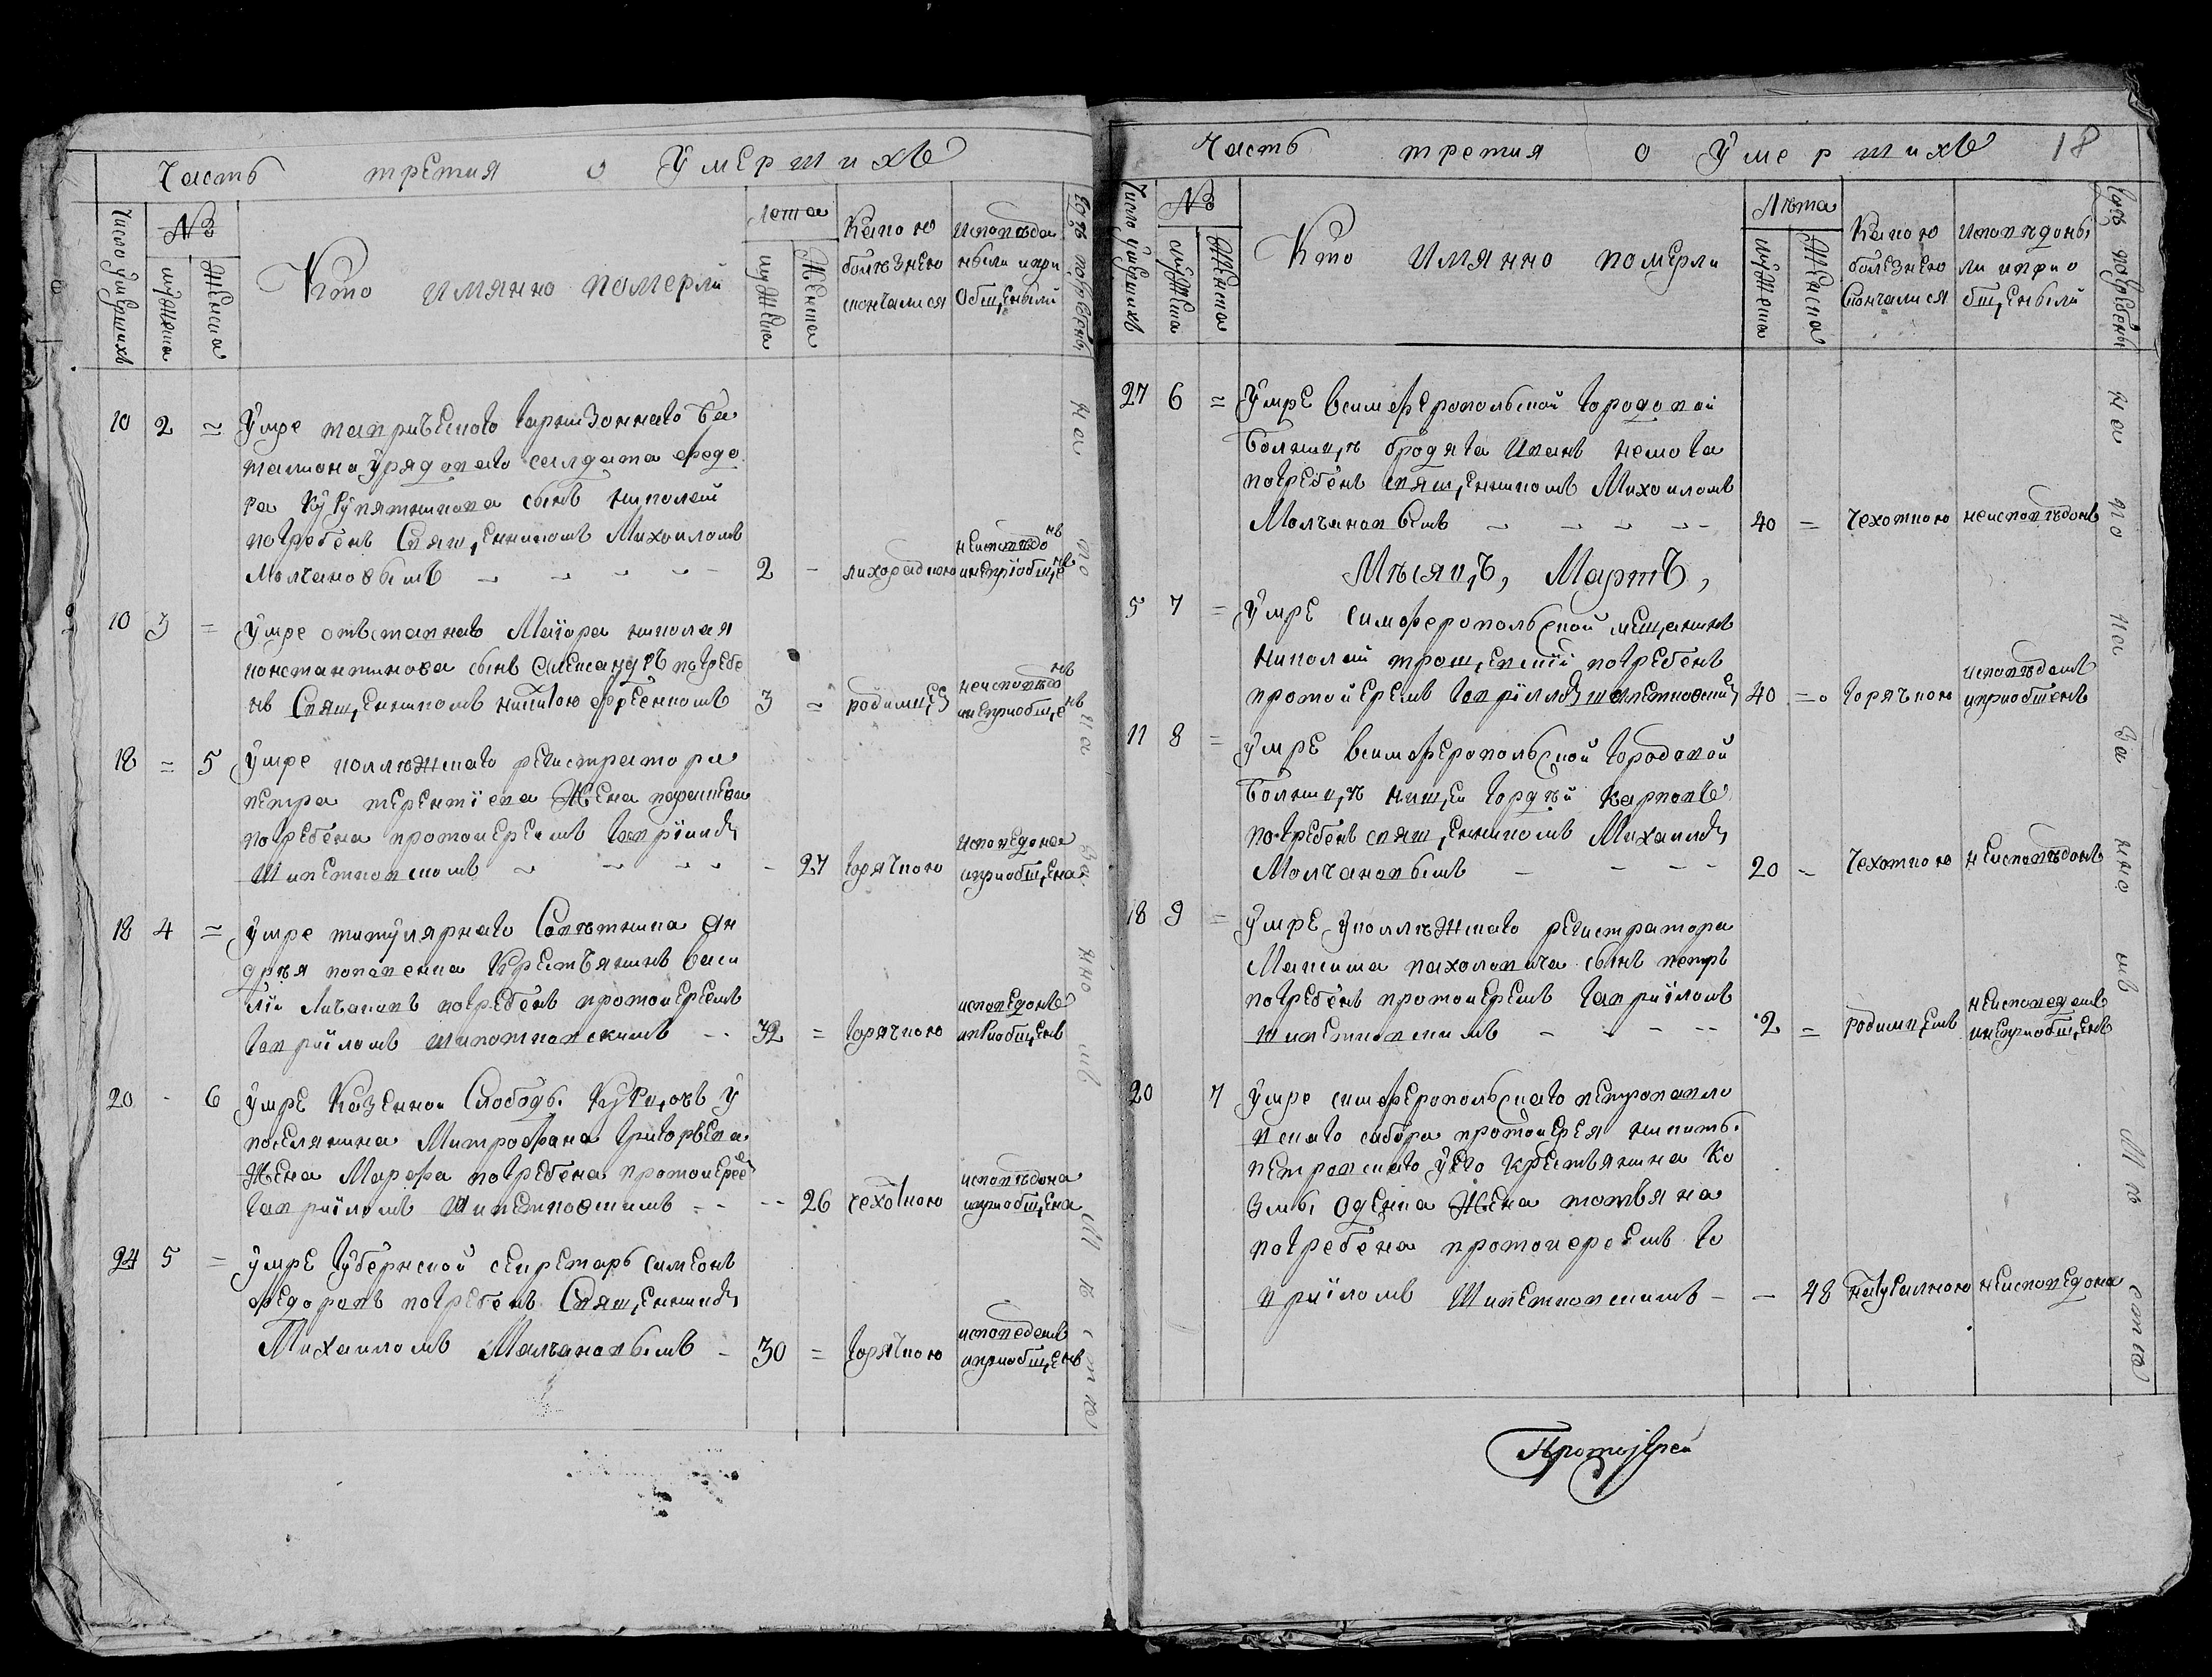 Часть третия о Умершихъ
Число умершихъ
№
мужеска
Женска
Кто имянно померли
лета
мужеска
Женска
Какою
болѣзнею
скончалися
исповѣдо
ныли и при
общеныли
Гдѣ погребены
10 2 = Умре таврическаго гарнизоннаго ба
талиона урядоваго салдата федо
ра
сынъ николай
погребенъ Священникомъ Михаиломъ
Молчановымъ 2 - лихорадкою неисповѣдонъ инепріобщенъ
10 3 = Умре отъставнаго Маіора николая
константинова сынъ Александръ погребе
нъ Священникомъ никитою 3 = родимцемъ неисповѣдонъ инеприобщенъ
18 = 5 Умре коллежскаго регистратора
петра терентіева Жена параскева
погребена протоиереимъ Гавріиломъ
Шипетковскомъ - 27 горячкою исповедона иприобщена
18 4 = Умре титулярнаго Советника Ан
дрея потапенка Крестьянинъ васи
лій погребенъ протоиереемъ
Гавріиломъ шипотковскимъ 32 = горячкою исповедонъ иприобщенъ
20 - 6 Умре Казенной Слободы Курцовъ у
поселянина Митрофана григорьева
Жена Марфа погребена протоиереемъ
Гавріиломъ Шипетковскимъ - 26 чехоткою исповѣдона иприобщена
24 5 = Умре Губернской секретарь симеонъ
федоровъ погребенъ Священникомъ
Михаиломъ Малчановымъ - 30 = горячкою исповеденъ иприобщенъ
На по ла га
 но мъ Мѣ стѣ
Часть третия о Умершихъ 18
Число умершихъ
№
мужеска
Женска
Кто имянно померли
Лѣта
мужеска
Женска
Какою
болезнею
скончалися
исповѣдоны
ли иприо
бщеныли
Гдѣ погребены
27 6 = Умре всимферопольской городовой
больницѣ бродяга Иванъ немога
погребенъ священникомъ Михоиломъ
Молчановымъ 40 = чехоткою неисповѣдонъ
Мѣсяцъ, Мартъ,
5 7 = Умре симферопольской мещанинъ
николай погребенъ
протоиереемъ Гавріиломъ шипетковскимъ 40 = горячкою исповѣдонъ иприобщенъ
11 8 = Умре всимферопольской городовой
больницѣ нищей гордѣй карповъ
погребенъ священникомъ Михаиломъ
Молчановымъ 20 - чехоткою неисповѣдонъ
18 9 = Умре Уколлежскаго регистратора
Максима пахоловича сынъ петръ
погребенъ протоиереемъ Гавріиломъ
шипетковскимъ 2 = родимцемъ неисповеденъ инеприобщенъ
20 7 Умре симферопольскаго петропавло
вскаго сабора протоиерея никиты
петровскаго уего крестьянина Ко
змы Жена татьяна
погребена протоиереемъ Га
вріиломъ Шипетковскимъ - - 48 неисповедона
На по ла га
но мъ Мѣ стѣ
Протоіерей